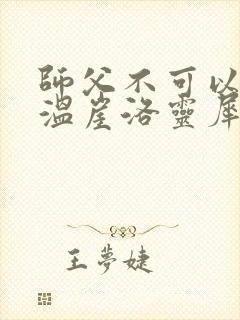 師父不可以
溫崖洛靈犀
王夢婕